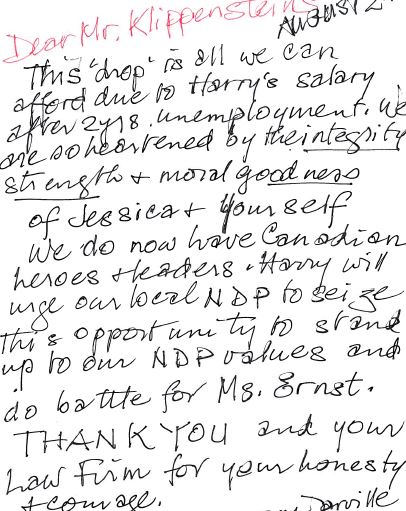 August 2
Dear Mr. Klippenstein
This 'drop' is all we can
afford due to Harry's salary
after 2yrs. unemployment. We
are so heartened by the integrity
strength + moral goodness
of Jessica + yourself
We do now have Canadian
heroes + leaders. Harry will
urge our local NDP to seize
this opportunity to stand
up to our NDP values and
do battle for Ms. Ernst.
THANK YOU and your
Law Firm for your honesty
+ courage.
Darville